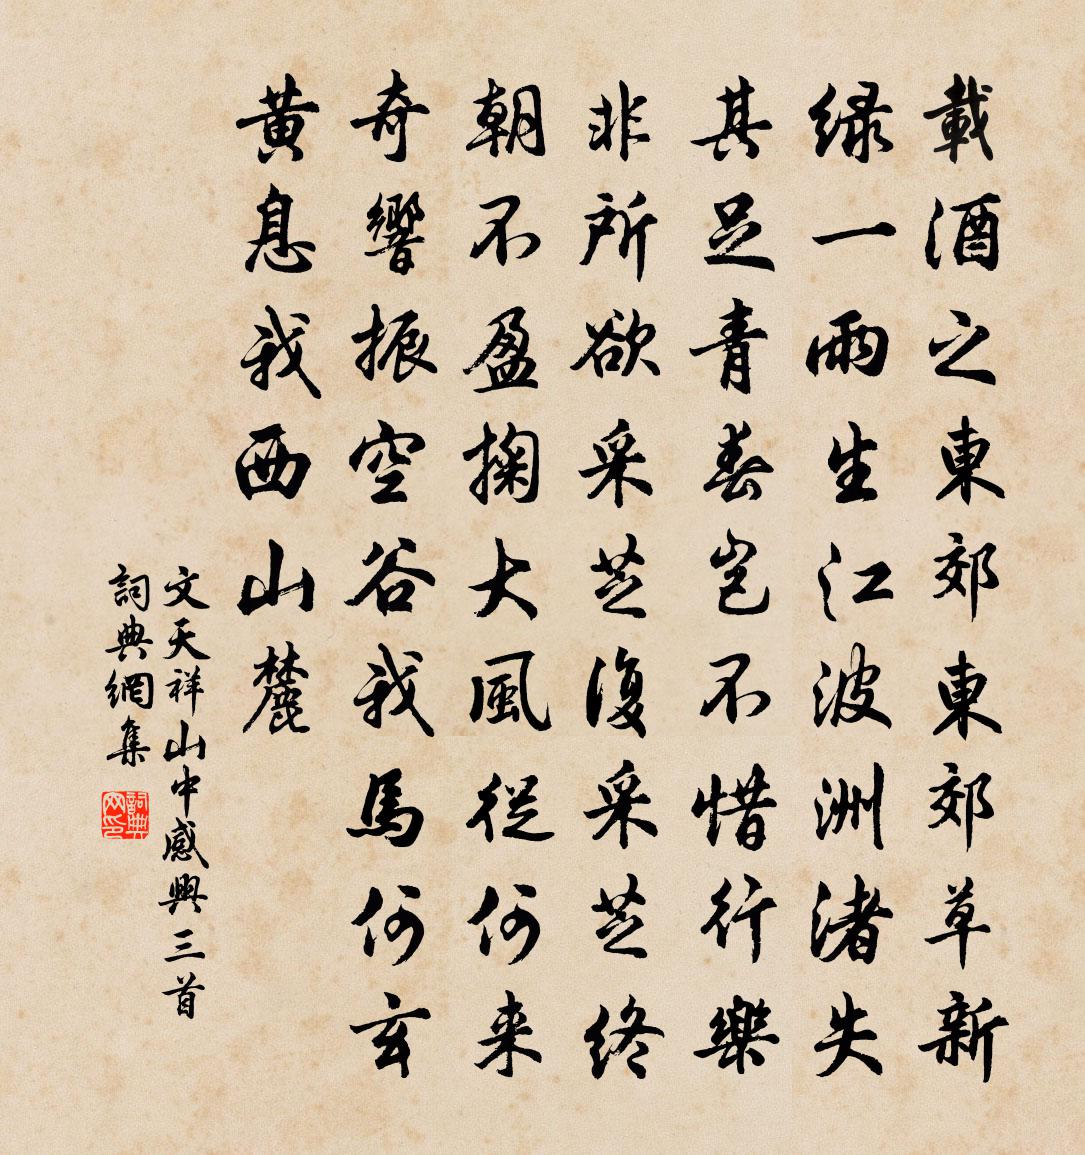 載酒之東郊東郊草新
緑一雨生江波洲渚失
其足青春豈不惜行樂
非所欲采芝復采芝終
朝不盈掬大風從何来
奇響振空谷我馬何玄
黄息我西山麓
文天祥山中感興三首
詞典網集
詞典网印